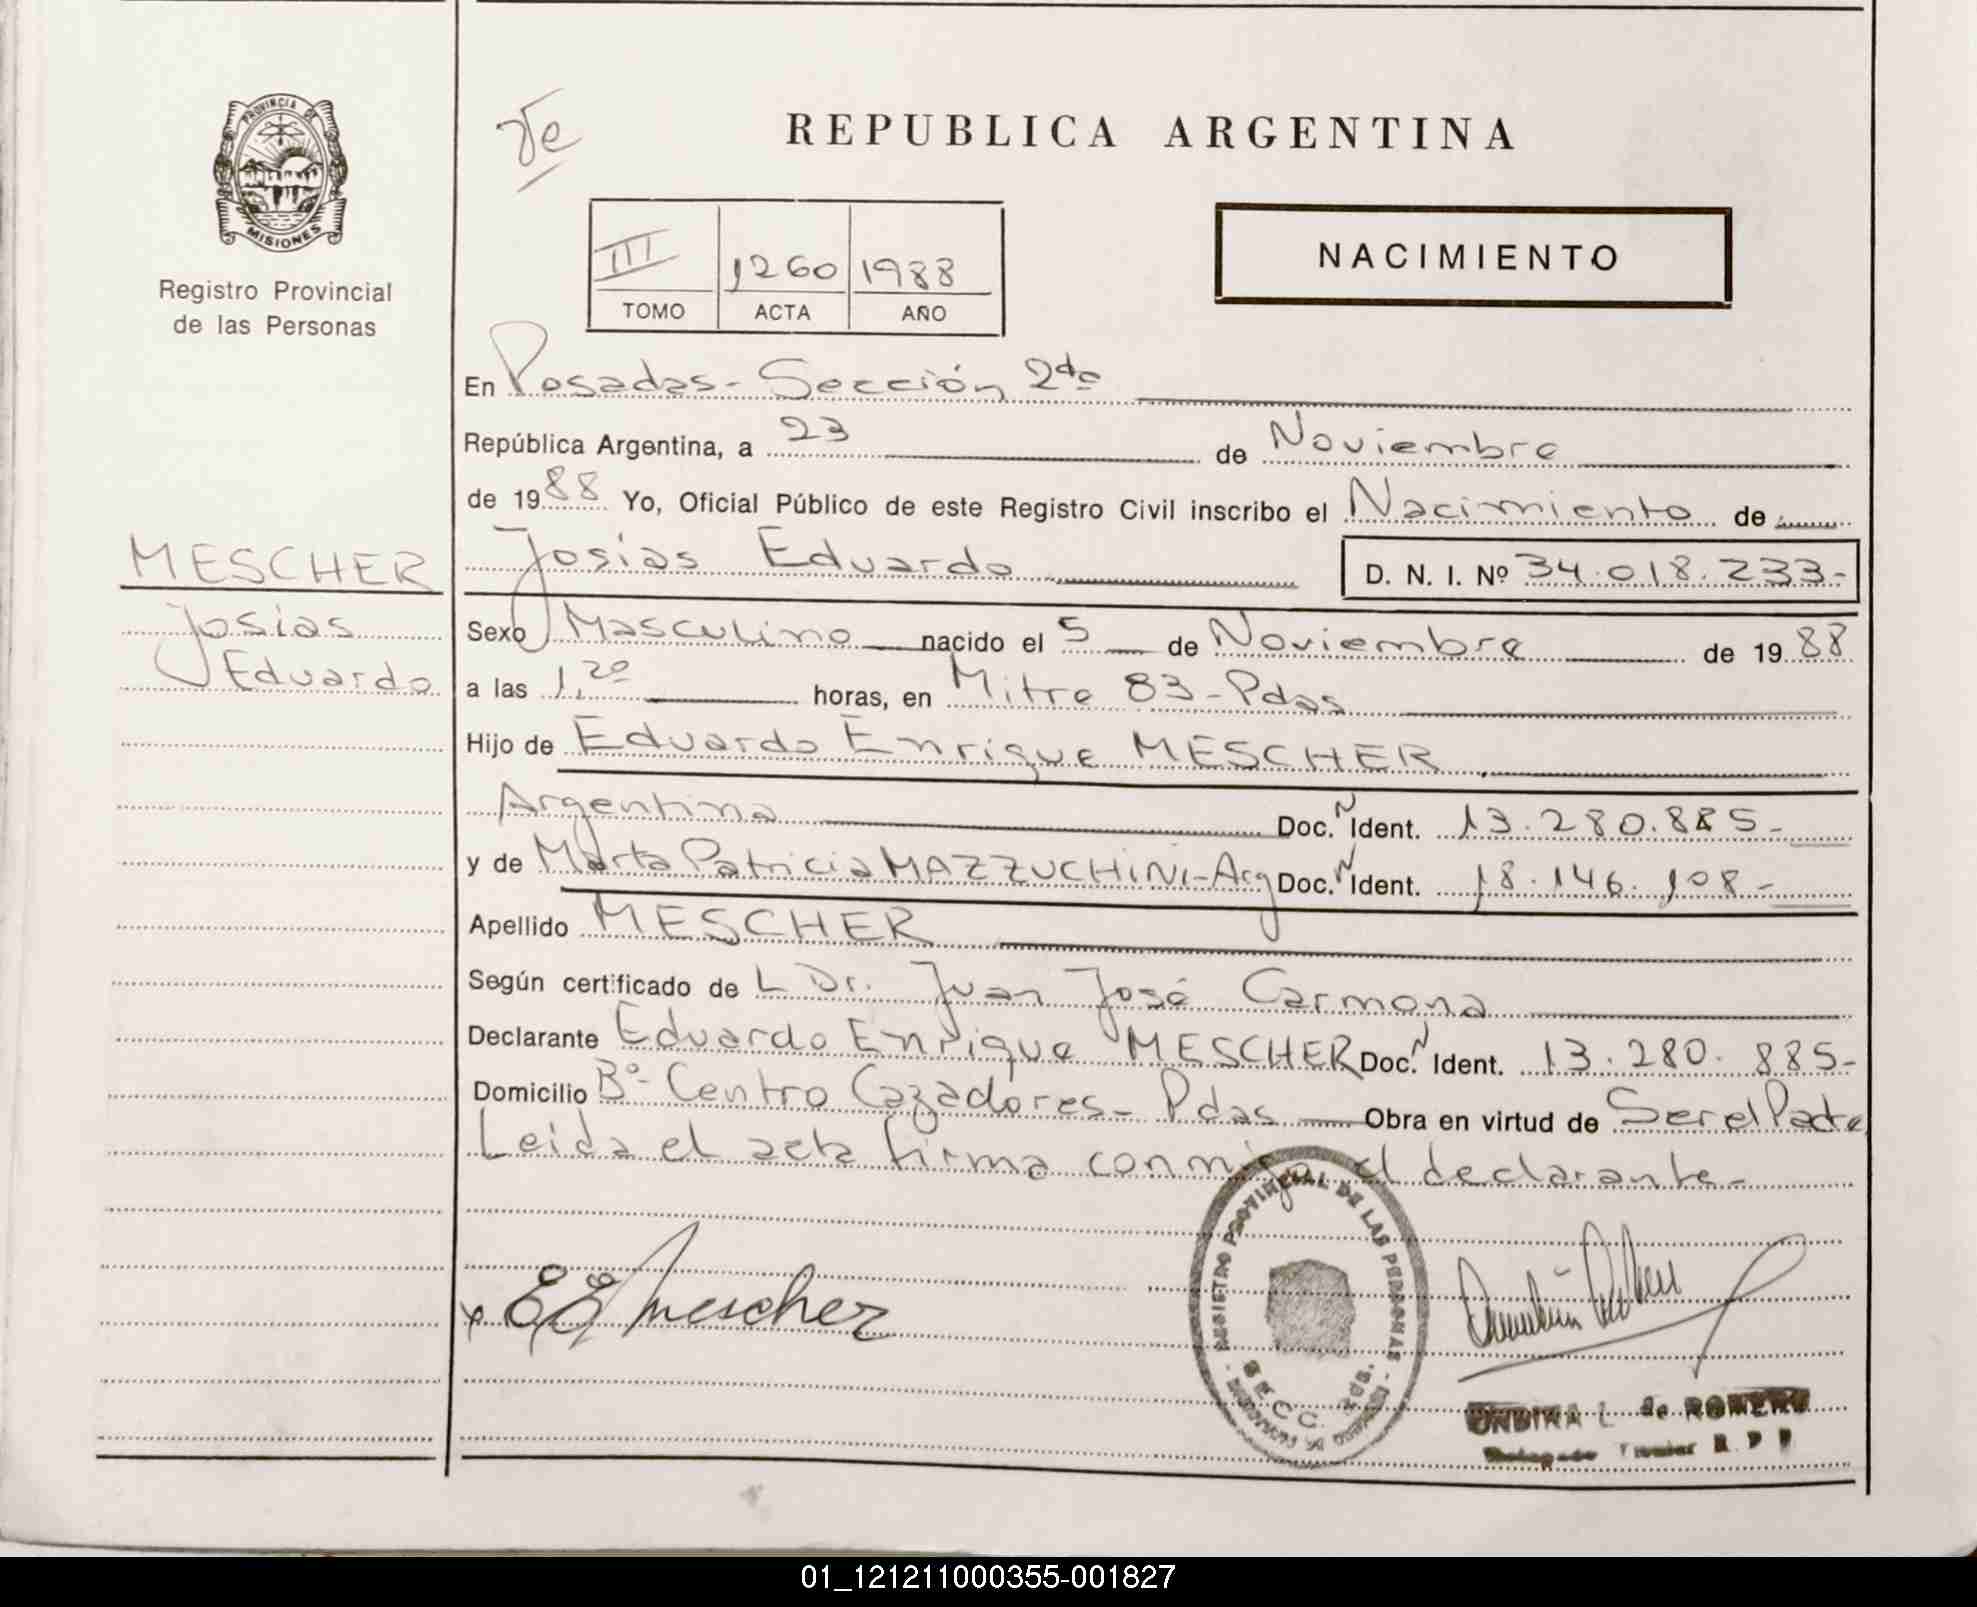 PROVINCIA DE
MISIONES
Registro Provincial
de las Personas
REPUBLICA ARGENTINA
NACIMIENTO
III 1260 1988
TOMO ACTA AÑO
En Posadas - Sección 2da
República Argentina, a 23 de Noviembre
de 1988 Yo, Oficial Público de este Registro Civil inscribo el Nacimiento de
Josías Eduardo D. N. I. Nº 34.018.233-
MESCHER
Josías
Eduardo
Sexo Masculino nacido el 5 de Noviembre de 1988
a las 1,20 horas, en Mitre 83 - Pdas
Hijo de Eduardo Enrique MESCHER
Argentina Doc. N Ident. 13.280.885-
y de Marta Patricia MAZZUCHINI - Arg Doc. N Ident. 18.146.108-
Apellido MESCHER
Según certificado de L Dr. Juan José Carmona
Declarante Eduardo Enrique MESCHER Doc. N Ident. 13.280.885-
Domicilio Bº- Centro Cazadores - Pdas Obra en virtud de Ser el Padre
Leida el acta firma conmigo el declarante-
x EE Mescher
REGISTRO PROVINCIAL DE LAS PERSONAS
SECC. 2da.
ONDINA L de ROMERO
R. P. P.
01_121211000355-001827